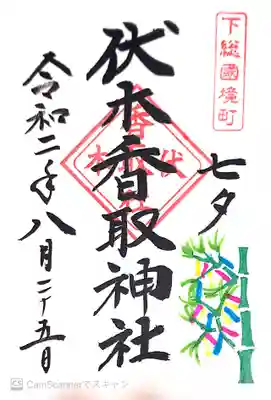 下総國境町
七夕
伏木香取神社
令和二年八月二十五日
CS CamScannerでスキャン